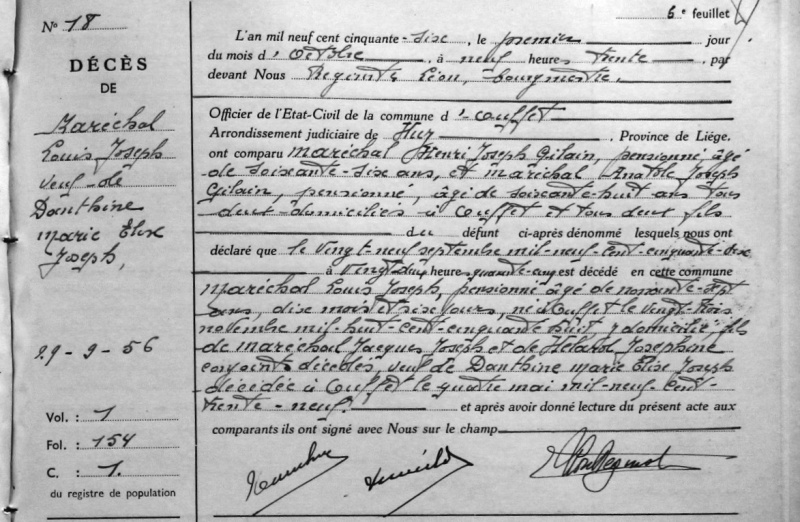 6e feuillet
No 18
DÉCÈS
DE
Maréchal
Louis Joseph
veuf de
Danthine
Marie Elise
Joseph,
29-9-56
Vol. : 1
Fol. : 154
C. : 1.
du registre de population
L'an mil neuf cent cinquante-six, le premier jour
du mois d'octobre, à neuf heures trente, par
devant Nous Léon, bourgmestre.
Officier de l'Etat-Civil de la commune d'Ouffet
Arrondissement judiciaire de Huy, Province de Liége.
ont comparu Maréchal Henri Joseph Gilain, pensionné, âgé
de soixante-six ans, et Maréchal Anatole Joseph
Gilain, pensionné, âgé de soixante-huit ans tous
deux domiciliés à Ouffet et tous deux fils
du défunt ci-après dénommé lesquels nous ont
déclaré que le vingt-neuf septembre mil-neuf-cent-cinquante-six
à vingt-deux heures quarante-cinq est décédé en cette commune
Maréchal Louis Joseph, pensionné âgé de nonante-sept
ans, dix mois et six jours, né à Ouffet le vingt-trois
novembre mil-huit-cent-cinquante huit, y domicilié, fils
de Maréchal Jacques Joseph et de Joséphine
conjoints décédés, veuf de Danthine Marie Elise Joseph
décédée à Ouffet le quatre mai mil-neuf-cent-
trente-neuf. et après avoir donné lecture du présent acte aux
comparants ils ont signé avec Nous sur le champ